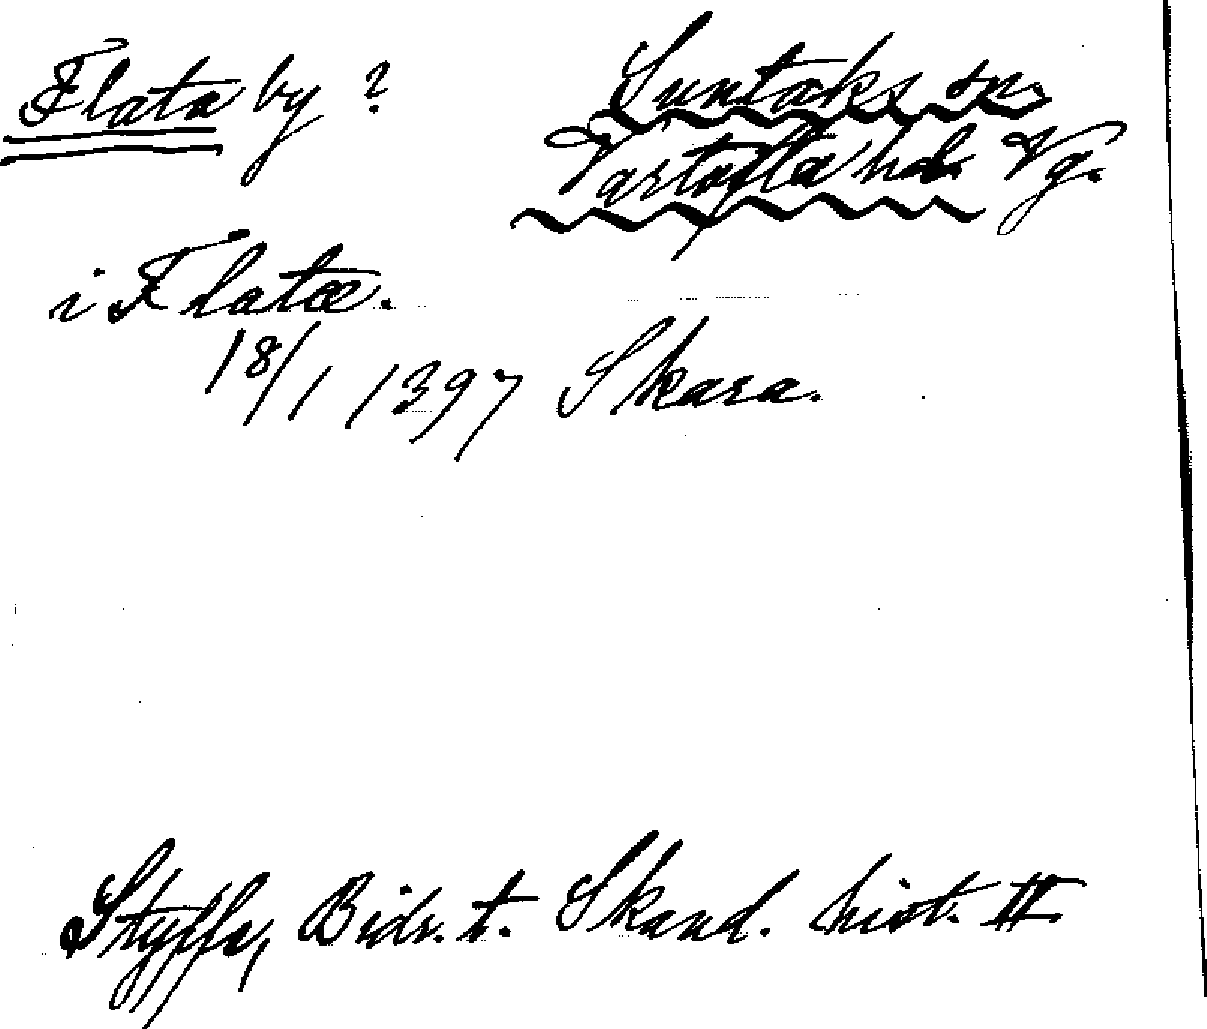 Flata by ?
Suntaks sn.
Vartofta hd. Vg.
i Flatæ.
18/1 1397 Skara.
Styffe, Bidr. t. Skand. hist. II.